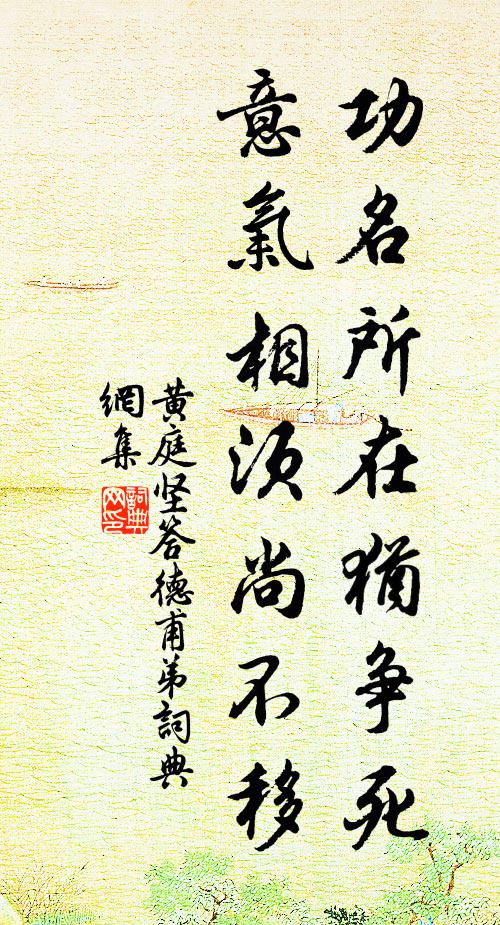 功名所在犹争死
意氣相须尚不移
黄庭坚答德甫弟詞典
網集
詞典
网印